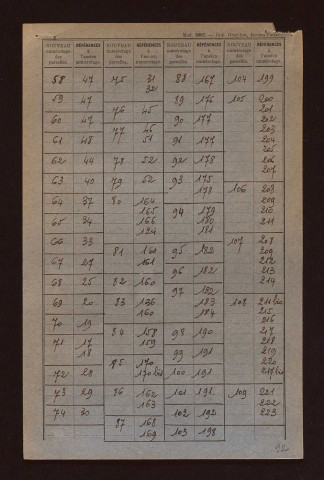 NOUVEAU numérotage des parcelles.
RÉFÉRENCES à l'ancien numérotage.
NOUVEAU numérotage des parcelles.
RÉFÉRENCES à l'ancien numérotage.
NOUVEAU numérotage des parcelles.
RÉFÉRENCES à l'ancien numérotage.
NOUVEAU numérotage des parcelles.
RÉFÉRENCES à l'ancien numérotage.
58 47
59 47
60 47
61 48
62 44
63 40
64 37
65 34
66 33
67 27
68 25
69 20
70 19
71 17
18
72 28
73 29
74 30
75 31
32
76 45
77 46
51
78 52
79 52
80 164
165
166
124
81 161
161
82 160
83 136
160
84 158
159
85 170
170 bis
86 162
163
87 168
169
88 167
89 176
90 177
91 177
92 178
93 175
178
94 179
180
181
95 182
96 182
97 182
183
184
98 190
99 191
100 191
101 191
102 192
103 198
104 199
105 200
201
202
203
204
205
206
207
106 203
209
210
211
107 208
209
212
213
214
108 211 bis
215
216
217
218
219
220
217 bis
109 221
222
223
92